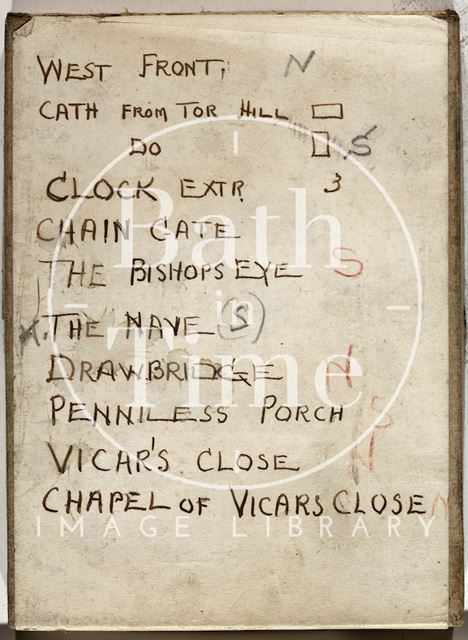 WEST FRONT, N
CATH FROM TOR HILL
DO S
CLOCK EXTR. 3
CHAIN GATE
THE BISHOPS EYE S
THE NAVE S
DRAWBRIDGE N
PENNILESS PORCH S
VICAR'S CLOSE N
CHAPEL OF VICARS CLOSE N
Bath
in
Time
IMAGE LIBRARY